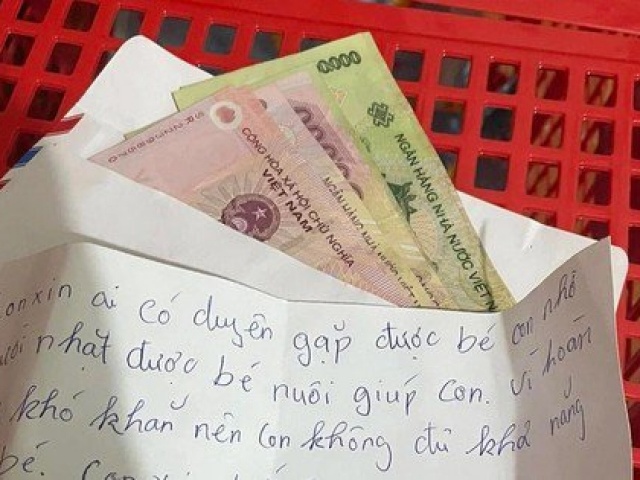 0.000
NGÂN HÀNG NHÀ NƯỚC VIỆT N
CỘNG HÒA XÃ HỘI CHỦ NGHĨA
VIỆT NAM
NGÂN HÀNG
onxin ai có duyên gặp được bé con nhờ
nhặt được bé nuôi giúp con. Vì hoàn
khó khăn nên con không đủ khả năng
bé. Con xin